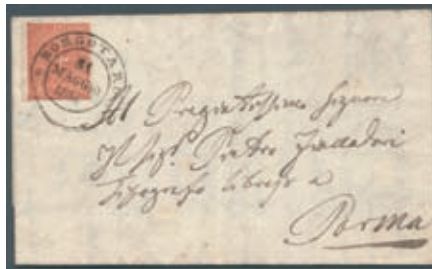 BORGOTARO
21
MAGGIO
Al Pregiatissimo Signore
Il Sigr. Pietro
Tipografo Librajo a
Parma